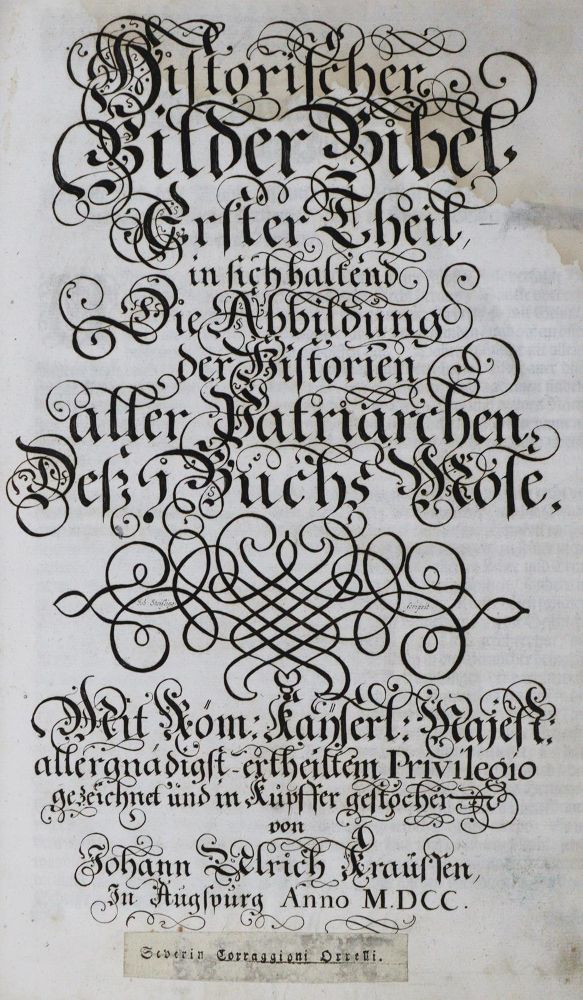 Historischer
Bilder Bibel.
Erster Theil,
in sich haltend
Die Abbildung
der Historien
aller Patriarchen,
Deß 1 Buchs Mose.
scripsit
Mit Röm: Kayserl: Majest:
allergnädigst-ertheiltem Privilegio
gezeichnet und in Kupffer gestochen
von
Johann Ulrich Kraussen,
In Augspurg Anno M.DCC.
Severin Corraggioni Orelli.